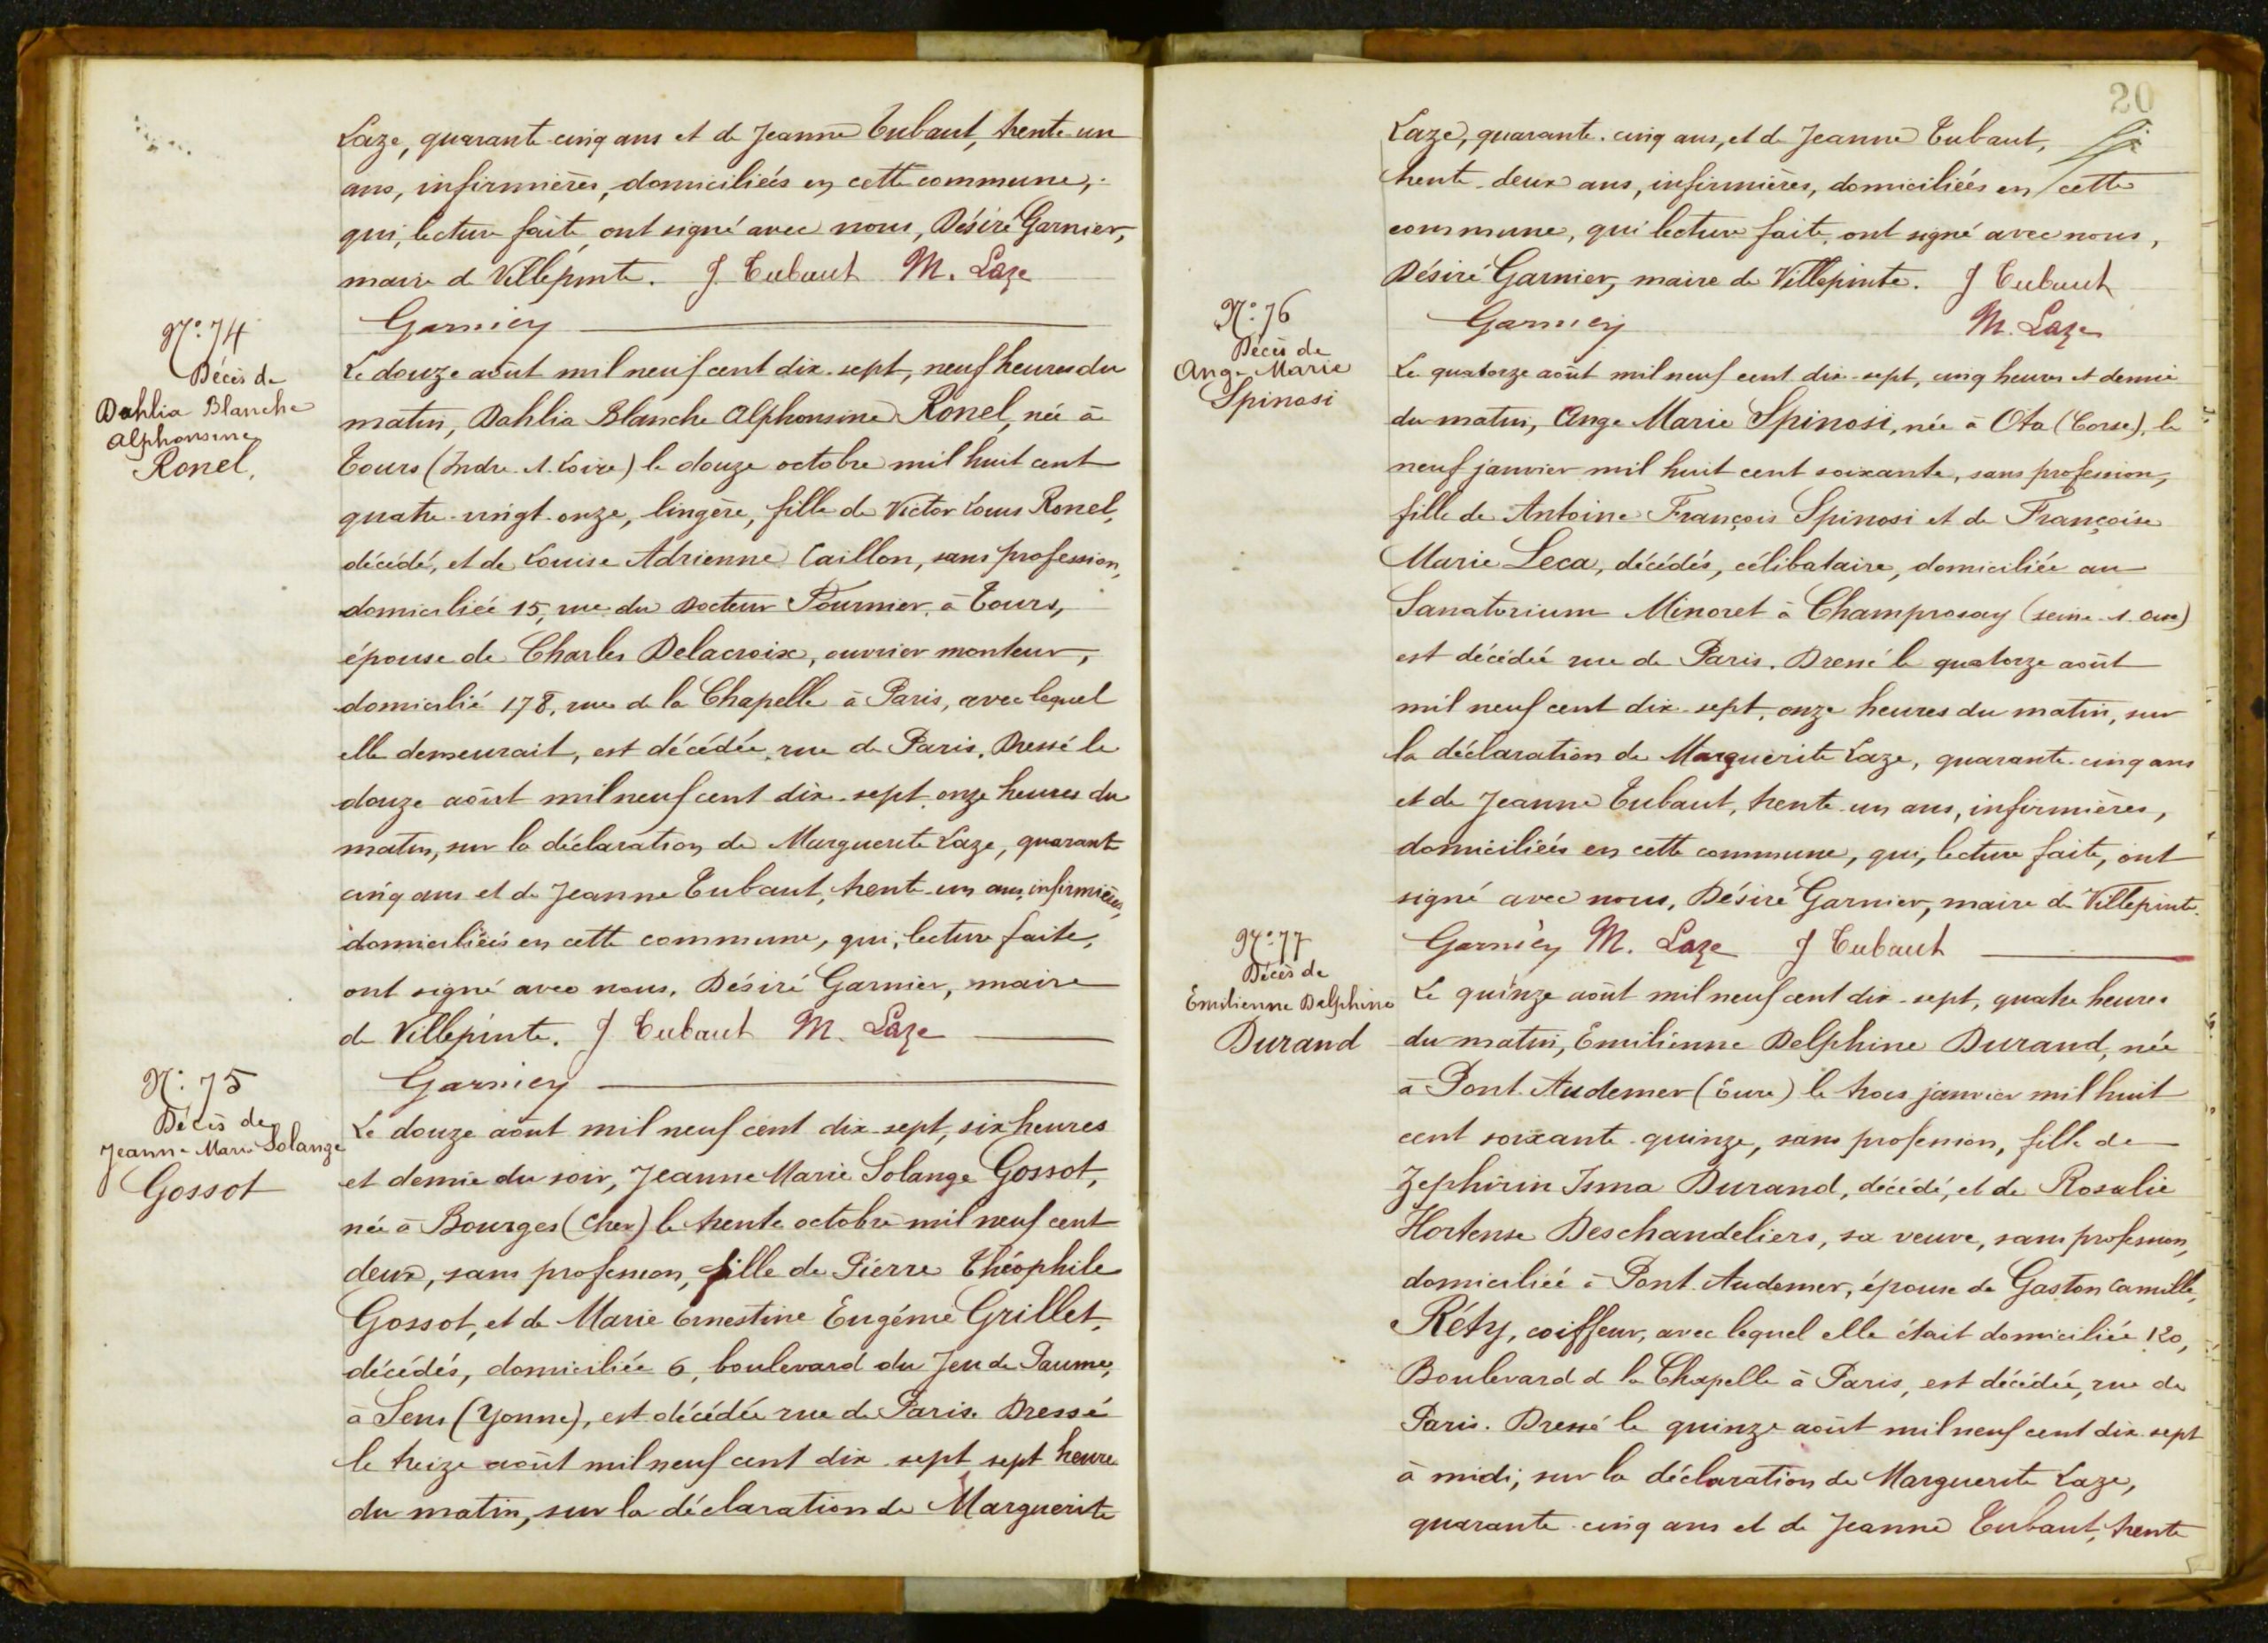 Laze, quarante-cinq ans et de Jeanne Tubaut, trente-un
ans, infirmières, domiciliées en cette commune,
qui, lecture faite, ont signé avec nous, Désiré Garnier,
maire de Villepinte. J. Tubaut M. Laze
Garnier
N°: 74
Décès de
Dahlia Blanche
Alphonsine
Ronel,
Le douze août mil neuf cent dix-sept, neuf heures du
matin, Dahlia Blanche Alphonsine Ronel, née à
Tours (Indre-et-Loire) le douze octobre mil huit cent
quatre-vingt-onze, lingère, fille de Victor Louis Ronel,
décédé, et de Louise Adrienne Caillon, sans profession,
domiciliée 15, rue du Docteur Fournier, à Tours,
épouse de Charles Delacroix, ouvrier monteur,
domicilié 178, rue de la Chapelle à Paris, avec lequel
elle demeurait, est décédée, rue de Paris. Dressé le
douze août mil neuf cent dix-sept, onze heures du
matin, sur la déclaration de Marguerite Laze, quarante
cinq ans et de Jeanne Tubaut, trente-un ans, infirmières,
domiciliées en cette commune, qui, lecture faite,
ont signé avec nous, Désiré Garnier, maire
de Villepinte. J. Tubaut M. Laze
Garnier
N°: 75
Décès de
Jeanne Marie Solange
Gossot
Le douze août mil neuf cent dix-sept, six heures
et demie du soir, Jeanne Marie Solange Gossot,
née à Bourges (Cher) le trente octobre mil neuf cent
deux, sans profession, fille de Pierre Théophile
Gossot, et de Marie Ernestine Eugénie Grillet,
décédés, domiciliée 6, boulevard du Jeu de Paume,
à Sens (Yonne), est décédée rue de Paris. Dressé
le treize août mil neuf cent dix-sept sept heures
du matin, sur la déclaration de Marguerite
20
Laze, quarante-cinq ans, et de Jeanne Tubaut,
trente-deux ans, infirmières, domiciliées en cette
commune, qui lecture faite, ont signé avec nous,
Désiré Garnier, maire de Villepinte. J Tubaut
Garnier M. Laze
N°: 76
Décès de
Ange Marie
Spinosi
Le quatorze août mil neuf cent dix-sept, cinq heures et demie
du matin, Ange Marie Spinosi, née à Ota (Corse), le
neuf janvier mil huit cent soixante, sans profession,
fille de Antoine François Spinosi et de Françoise
Marie Leca, décédés, célibataire, domiciliée au
Sanatorium Minoret à Champrosay (Seine-et-Oise)
est décédée rue de Paris. Dressé le quatorze août
mil neuf cent dix-sept, onze heures du matin, sur
la déclaration de Marguerite Laze, quarante-cinq ans
et de Jeanne Tubaut, trente-un ans, infirmières,
domiciliées en cette commune, qui, lecture faite, ont
signé avec nous, Désiré Garnier, maire de Villepinte.
Garnier M. Laze J Tubaut
N°: 77
Décès de
Emilienne Delphine
Durand
Le quinze août mil neuf cent dix-sept, quatre heures
du matin, Emilienne Delphine Durand, née
à Pont-Audemer (Eure) le trois janvier mil huit
cent soixante-quinze, sans profession, fille de
Zephirin Isma Durand, décédé, et de Rosalie
Hortense Deschandeliers, sa veuve, sans profession,
domiciliée à Pont-Audemer, épouse de Gaston Camille,
Réty, coiffeur, avec lequel elle était domiciliée 120,
Boulevard de la Chapelle à Paris, est décédée, rue de
Paris. Dressé le quinze août mil neuf cent dix-sept
à midi, sur la déclaration de Marguerite Laze,
quarante-cinq ans et de Jeanne Tubaut, trente